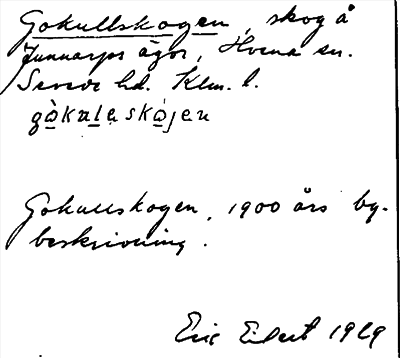 Gokullskogen, skog å
Junnarps ägor, Hvena sn.
Sevede hd. Klm. l.
gòkulleskójen
Gokullskogen, 1900 års by-
beskrivning.
Eric Eilert 1929